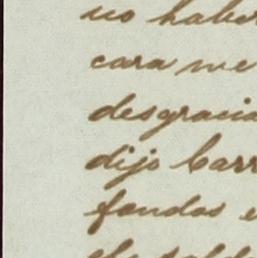 no haber
cara me
desgracia
dijo Carr
fondos e